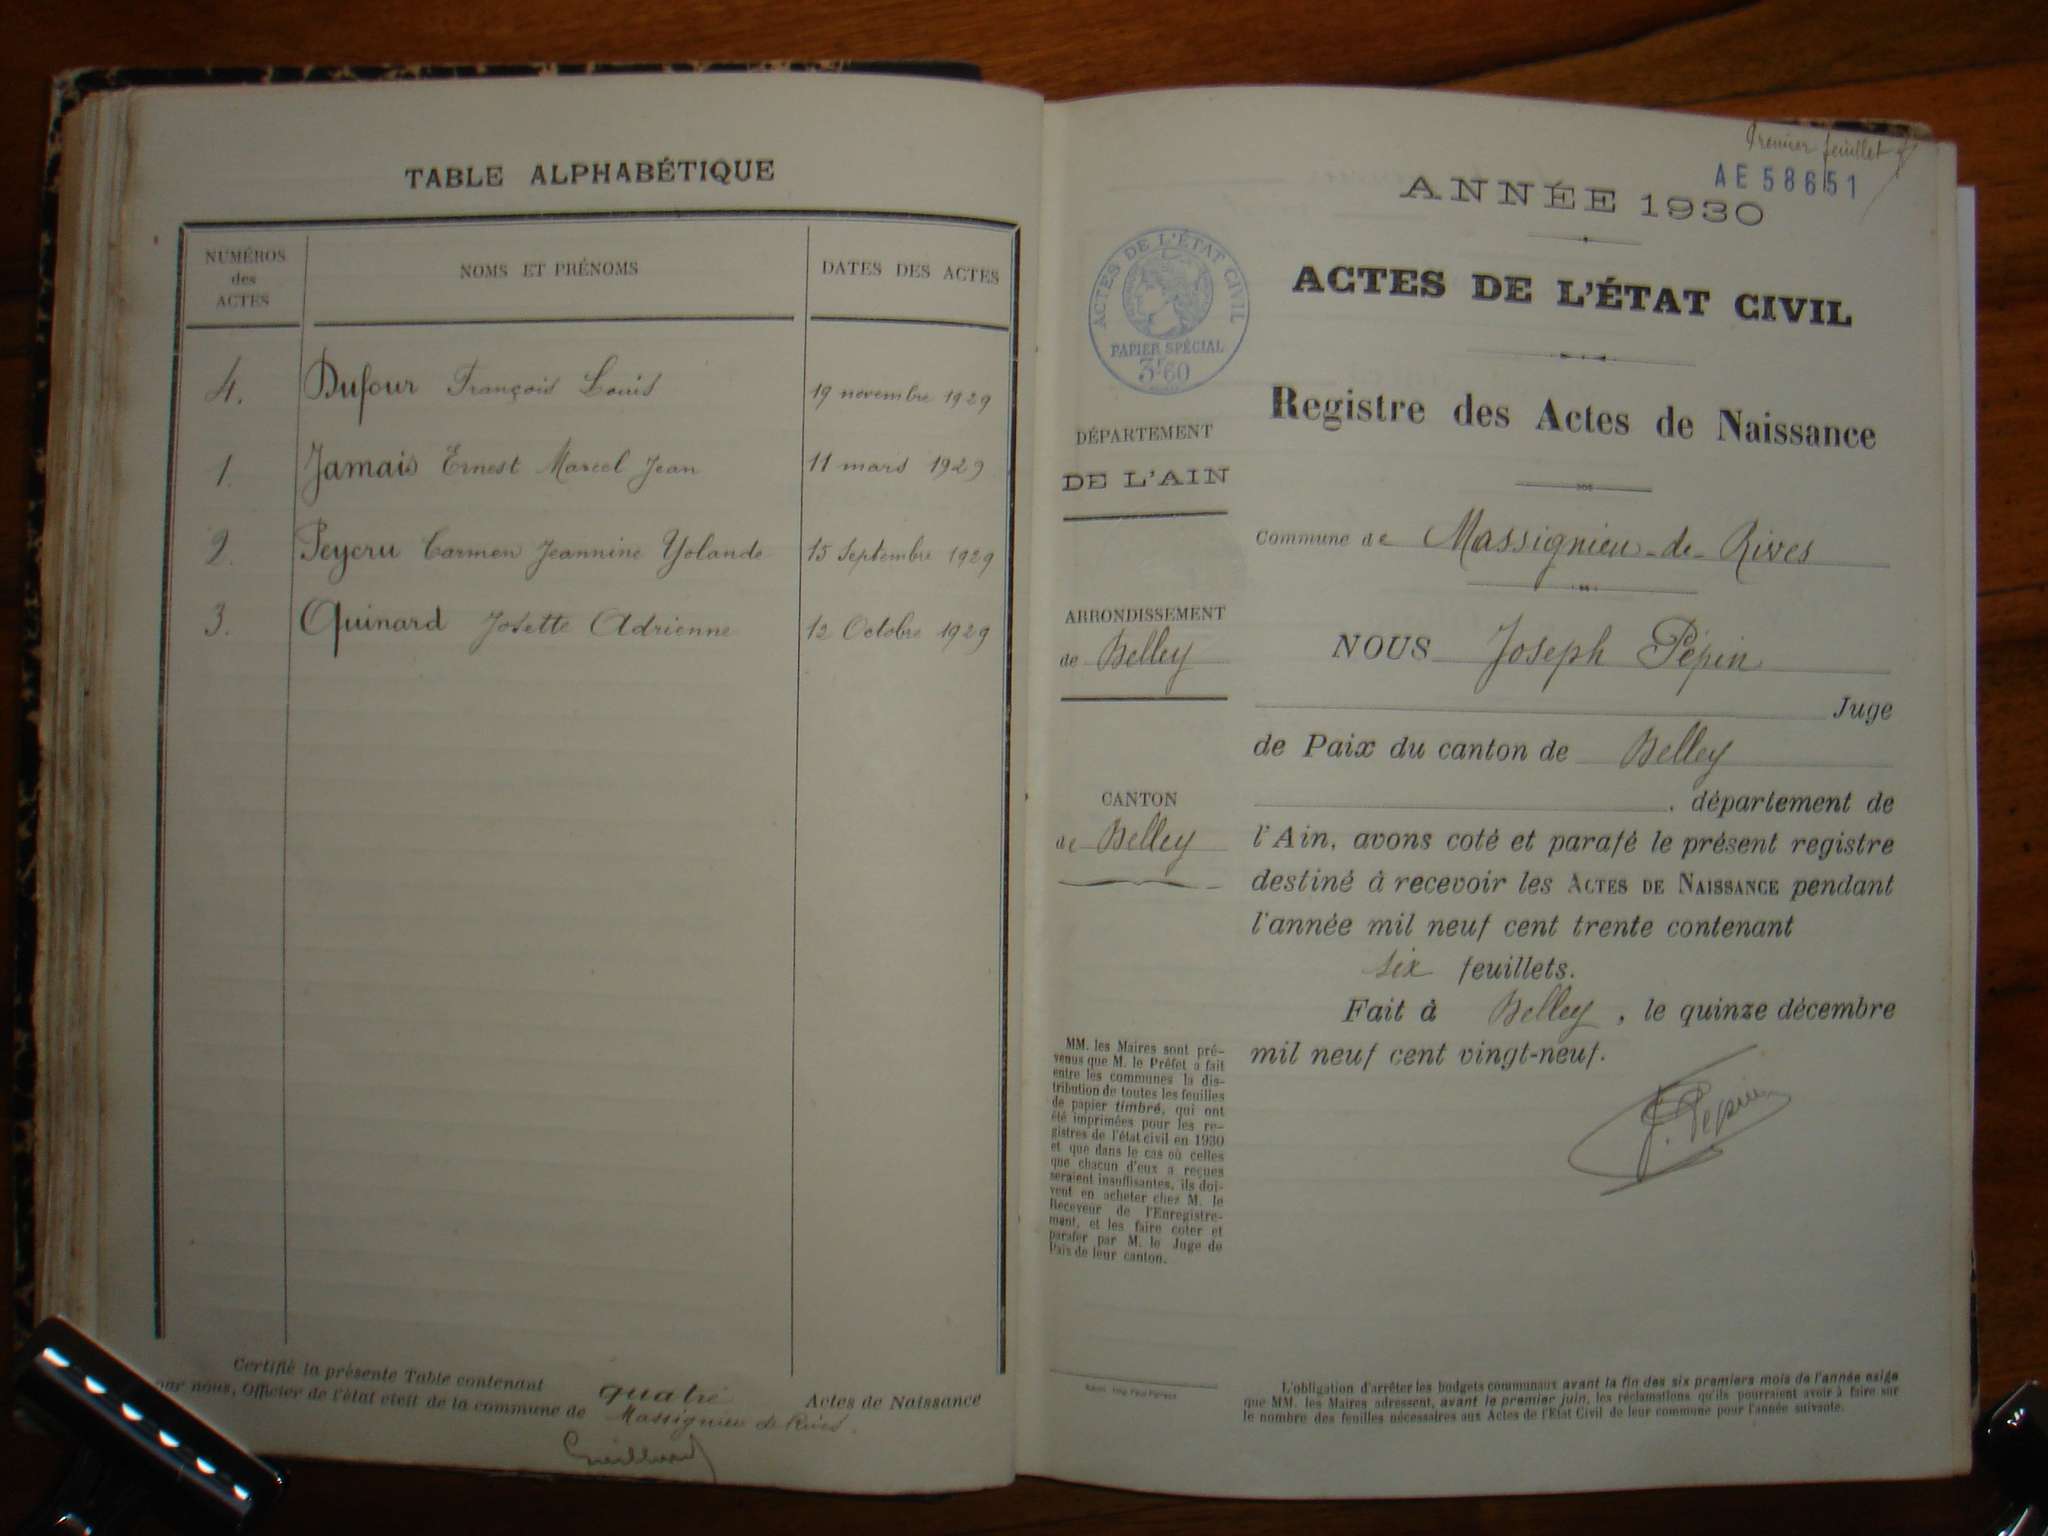 TABLE ALPHABÉTIQUE
NUMÉROS
des
ACTES
NOMS ET PRÉNOMS
DATES DES ACTES
4. Dufour François Louis 19 novembre 1929
1. Jamais Ernest Marcel Jean 11 mars 1929
2. Peycru Carmen Jeannine Yolande 15 Septembre 1929
3. Quinard Josette Adrienne 12 Octobre 1929
Certifié la présente Table contenant quatre Actes de Naissance
par nous, Officier de l'état civil de la commune de Massignieu de Rives.
Premier feuillet
AE 58651
ANNÉE 1930
ACTES DE L'ÉTAT CIVIL
PAPIER SPÉCIAL
3F60
ACTES DE L'ÉTAT CIVIL
Registre des Actes de Naissance
DÉPARTEMENT
DE L'AIN
Commune de Massignieu-de-Rives
ARRONDISSEMENT
de Belley
CANTON
de Belley
NOUS Joseph Pépin
Juge
de Paix du canton de Belley
, département de
l'Ain, avons coté et parafé le présent registre
destiné à recevoir les ACTES DE NAISSANCE pendant
l'année mil neuf cent trente contenant
six feuillets.
Fait à Belley, le quinze décembre
mil neuf cent vingt-neuf.
J. Pépin
MM. les Maires sont pré-
venus que M. le Préfet a fait
entre les communes la dis-
tribution de toutes les feuilles
de papier timbré, qui ont
été imprimées pour les re-
gistres de l'état civil en 1930
et que dans le cas où celles
que chacun d'eux a reçues
seraient insuffisantes, ils doi-
vent en acheter chez M. le
Receveur de l'Enregistre-
ment, et les faire coter et
parafer par M. le Juge de
Paix de leur canton.
L'obligation d'arrêter les budgets communaux avant la fin des six premiers mois de l'année exige
que MM. les Maires adressent, avant le premier juin, les réclamations qu'ils pourraient avoir à faire sur
le nombre des feuilles nécessaires aux Actes de l'Etat Civil de leur commune pour l'année suivante.